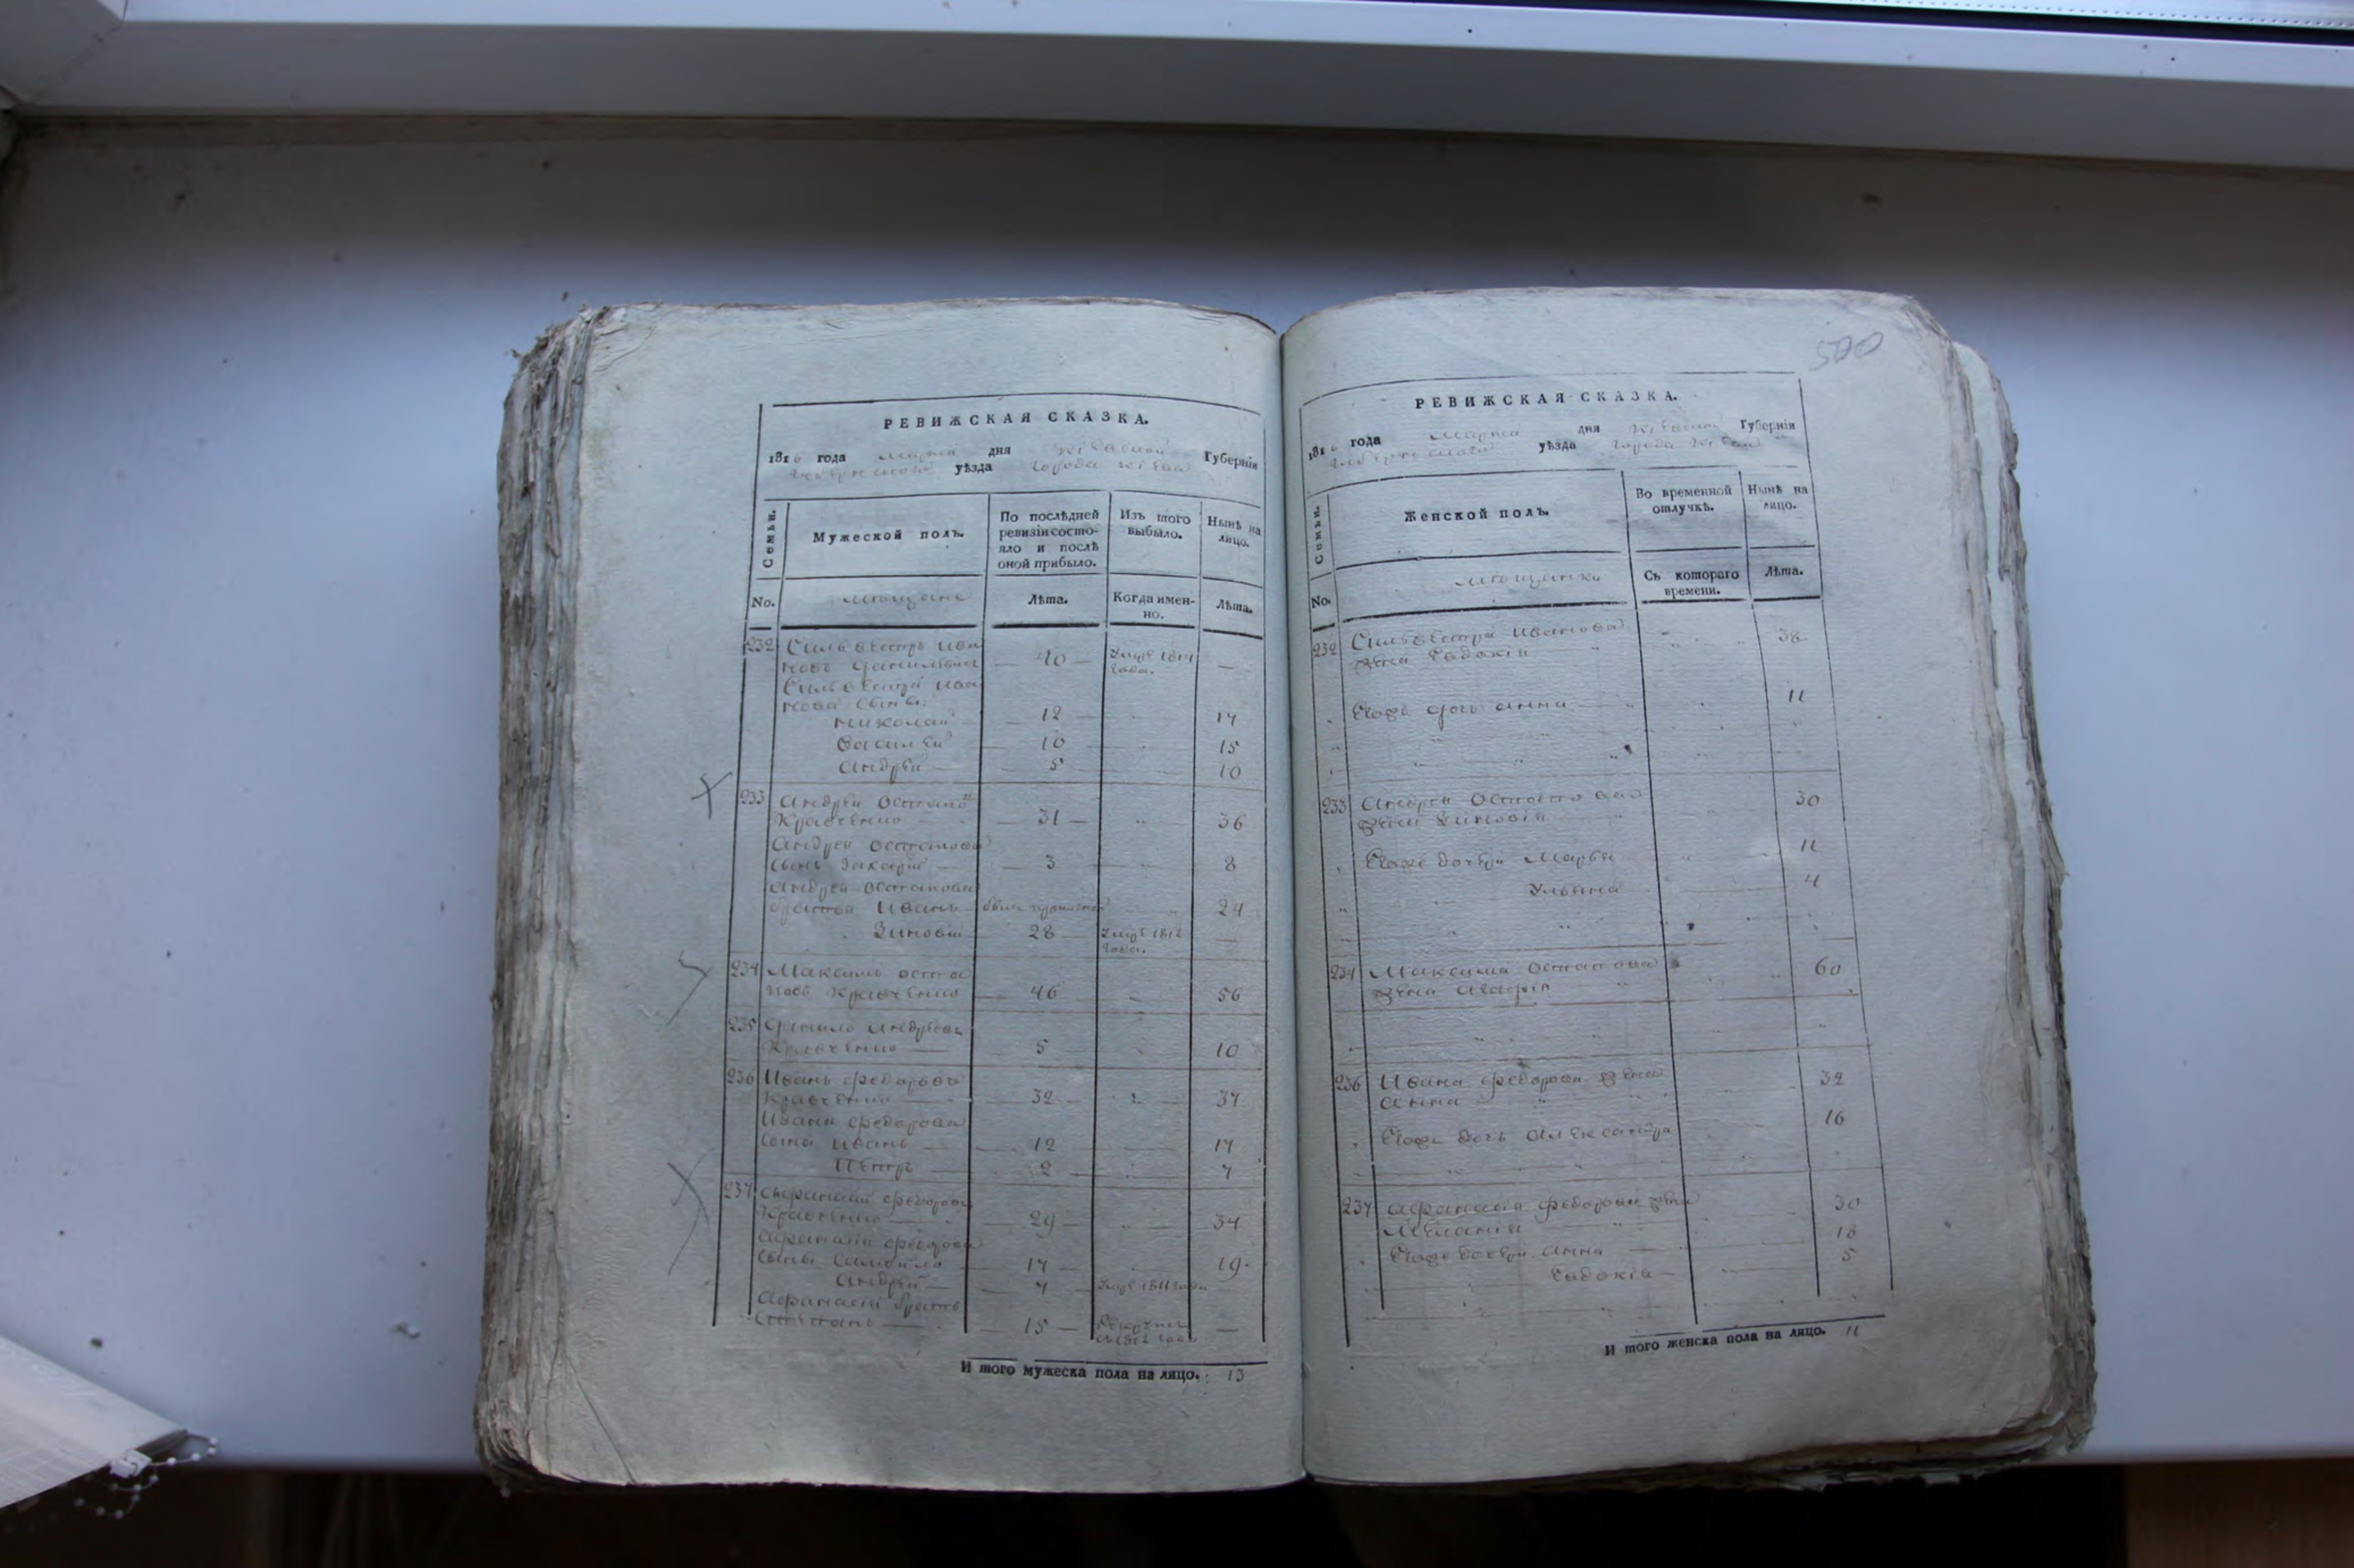 РЕВИЖСКАЯ СКАЗКА.
1816 года марта дня Киевской Губерніи
уѣзда города Киева
Семьи.
Мужеской полъ.
По послѣдней ревизіи состо-
яло и послѣ
оной прибыло.
Изъ того выбыло.
Нынѣ на лицо.
No.
мещане
Лѣта.
Когда имен-
но.
Лѣта.
232 Сильвестръ Ива
новъ 40 1814 года. —
Сильвестра Ива
нова сыны:
Николай 12 17
Василей 10 15
Андрей 5 10
233 Андрей Остапов
Кравченко 31 36
Андрея Остапова
сынъ Захарій 3 8
Андрея Остапова
братья Иванъ 24
Зиновій 28 1812 года. —
234 Максимъ Оста
повъ Кравченко 46 56
235 Данило Андреевъ
Кравченко 5 10
236 Иванъ Федоровъ
Кравченко 32 37
Ивана Федорова
сына Иванъ 12 17
Петръ 2 7
237 Афанасій Федоровъ
Кравченко 29 34
Афанасія Федорова
сыны Самойло 14 19.
Андрей 7 1811 года
Афанасія братъ
Степанъ 15 1812 года —
И того мужеска пола на лицо. 13
500
РЕВИЖСКАЯ СКАЗКА.
1816 года марта дня Киевской Губерніи
уѣзда города Киева
Семьи.
Женской полъ.
Во временной отлучкѣ.
Нынѣ на лицо.
No.
мещанки
Съ котораго времени.
Лѣта.
232 Сильвестра Иванова
жена Евдокія 38
Егожъ дочь Анна 11
233 Андрея Остапова
жена Зиновія 30
Егоже дочери Марья 11
Ульяна 4
234 Максима Остапова
жена Агафія 60
236 Ивана Федорова жена
Анна 32
Егожъ дочь Александра 16
237 Афанасія Федорова жена
Меланія 30
Егоже дочери Анна 18
Евдокія 5
И того женска пола на лицо. 11